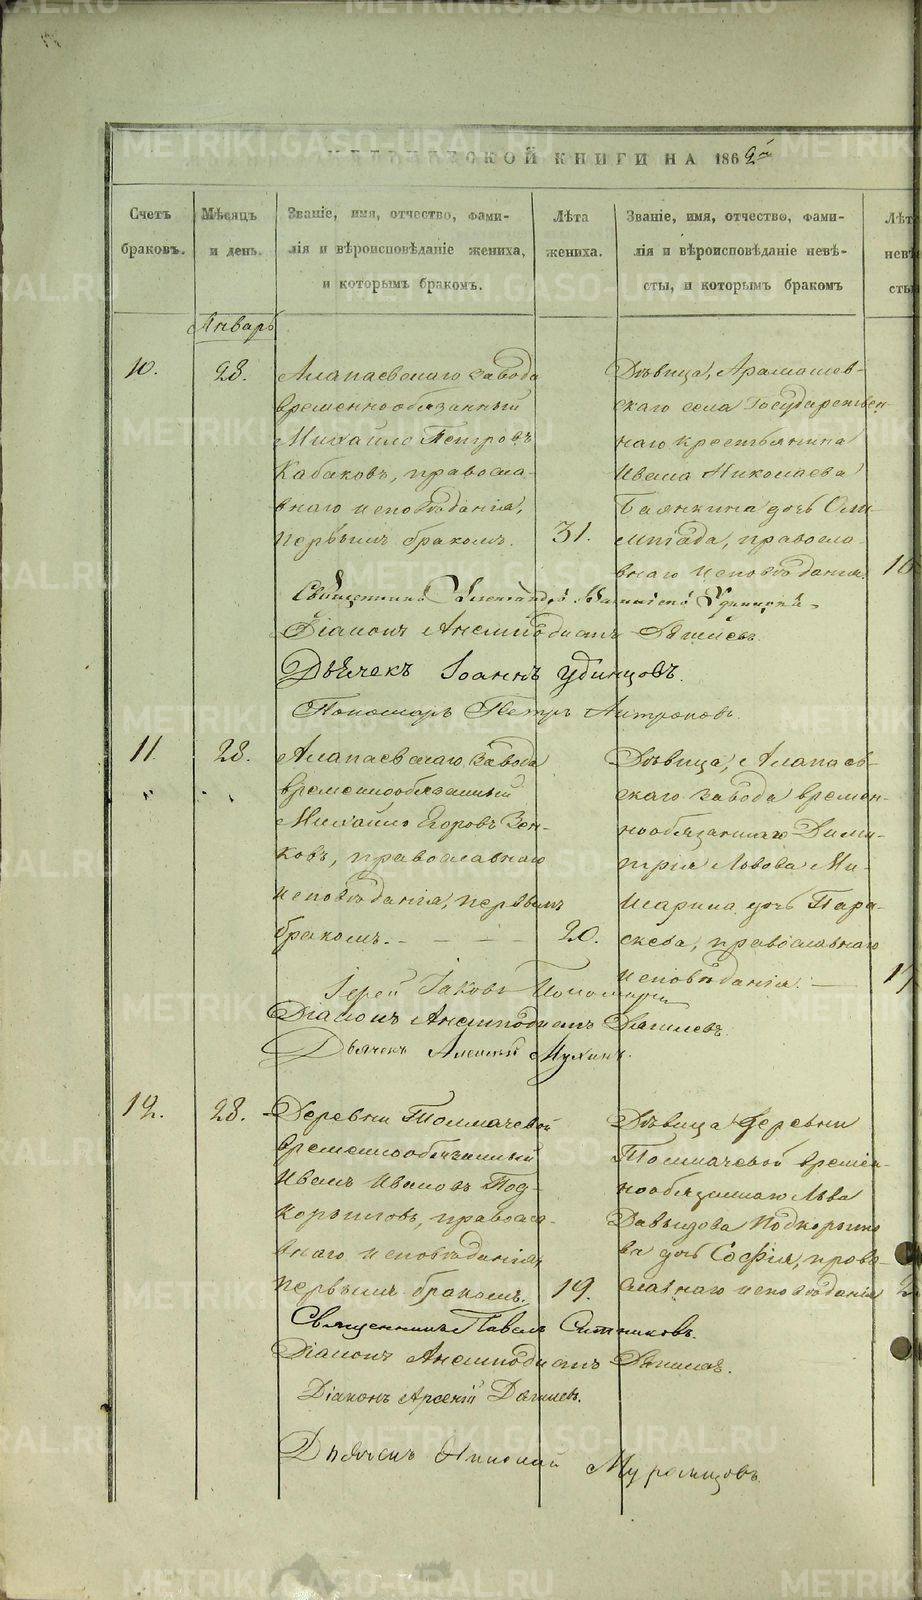 МЕТРИЧЕСКОЙ КНИГИ НА 1862й
Счетъ браковъ.
Мѣсяцъ и день.
Званіе, имя, отчество, фами-
лія и вѣроисповѣданіе жениха,
и которымъ бракомъ.
Лѣта
жениха.
Званіе, имя, отчество, фами-
лія и вѣроисповѣданіе невѣ-
сты, и которымъ бракомъ
Лѣта
невѣ
сты
Январь
10.
28.
Алапаевскаго завода
временнообязанный
Михайло Петровъ
Кабаковъ, правосла-
внаго исповѣданія,
первымъ бракомъ.
31.
Дѣвица, Арамашев-
скаго села Государствен-
наго крестьянина
Ивана Николаева
Баянкина дочь Оли-
мпіада, правосла-
внаго исповѣданія.
Священникъ Александръ Удинцовъ
Діаконъ Анемподистъ Вагилевъ.
Дьячекъ Іоаннъ Удинцовъ.
Пономарь Петръ Антроповъ.
11.
28.
Алапаевскаго завода
временнообязанный
Михайло Егоровъ Зен-
ковъ, православнаго
исповѣданія, первымъ
бракомъ.
20.
Дѣвица, Алапаев-
скаго завода времен-
нообязаннаго Дими-
трія Львова Ми-
шарина дочь Пара-
скева, православнаго
исповѣданія.
Іерей Іаковъ Пономаревъ
Діаконъ Анемподистъ Вагилевъ.
Дьячекъ Алексѣй Мухинъ.
12.
28.
Деревни Толмачевой
временнообязанный
Иванъ Ивановъ Под-
корытовъ, правосла-
внаго исповѣданія,
первымъ бракомъ.
19.
Дѣвица Деревни
Толмачевой времен-
нообязаннаго Льва
Давыдова Подкорыто
ва дочь Софія, право-
славнаго исповѣданія
Священникъ Павелъ Ситниковъ.
Діаконъ Анемподистъ Вагилевъ.
Діаконъ Арсеній Вагилевъ.
Дьячекъ Николай Муромцовъ.
METRIKI.GASO-URAL.RU